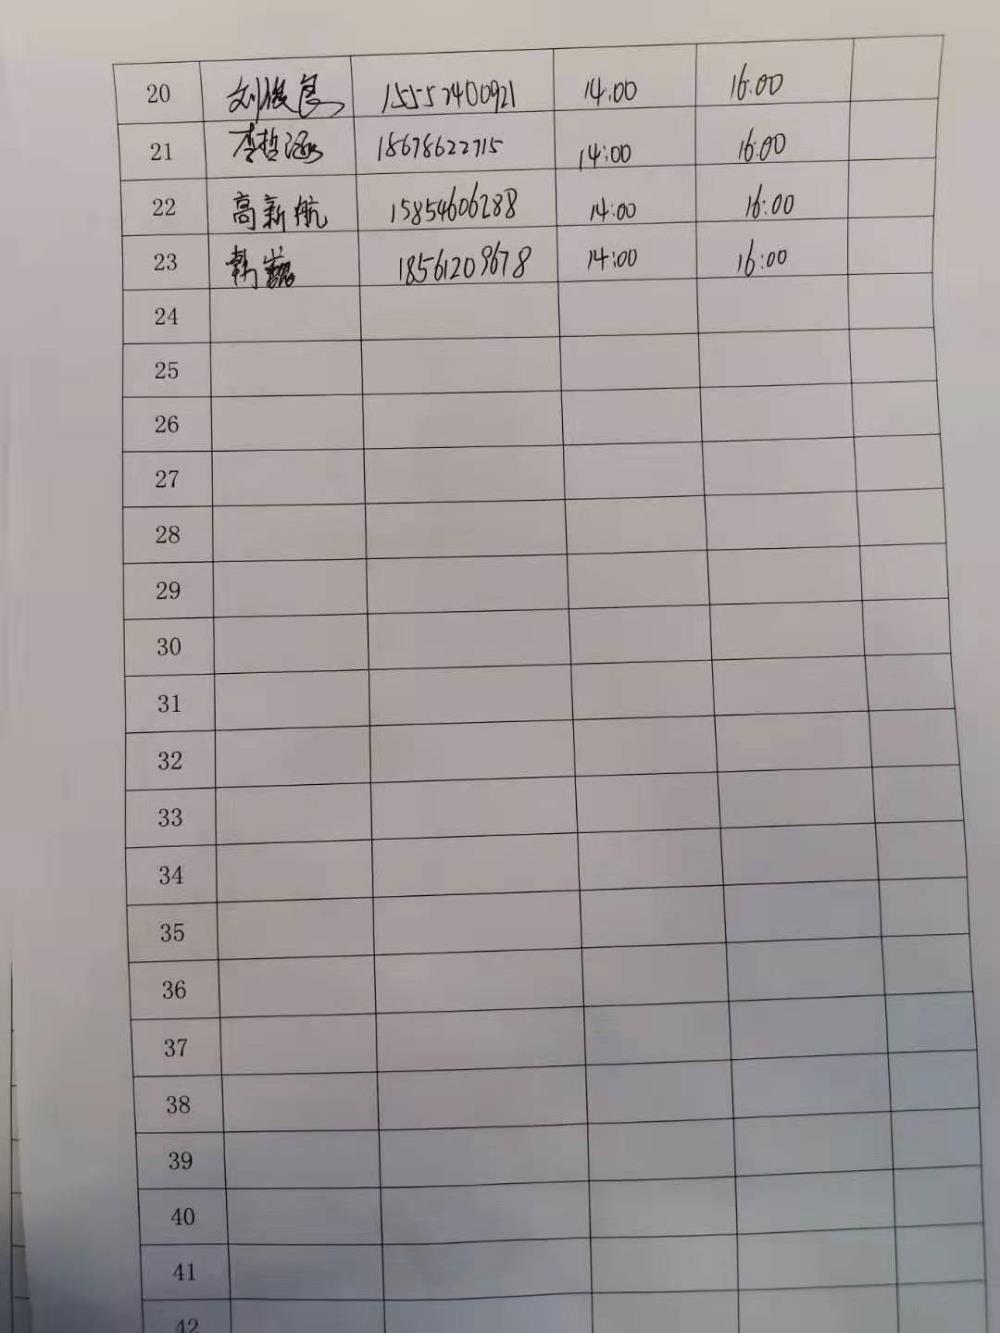 20 刘俊良 15552400921 14:00 16:00
21 李哲涵 18678622715 14:00 16:00
22 高新航 15854606288 14:00 16:00
23 韩 18561209678 14:00 16:00
24
25
26
27
28
29
30
31
32
33
34
35
36
37
38
39
40
41
42